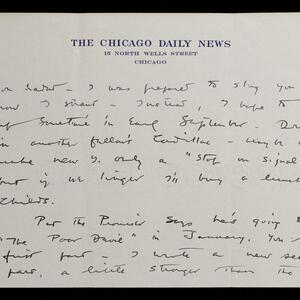 THE CHICAGO DAILY NEWS
15 NORTH WELLS STREET
CHICAGO
I was prepared to stay
how I stand - Instead, I hope to
Sometime in Early September.
in another fellow's Cadillac - maybe
only a "stop on signal
but if we linger I'll buy a lunch
Childs.
Pat the Promiser says he's going
"The Poor Dave" in January. You
first part - I wrote a new
part, a little stronger than the